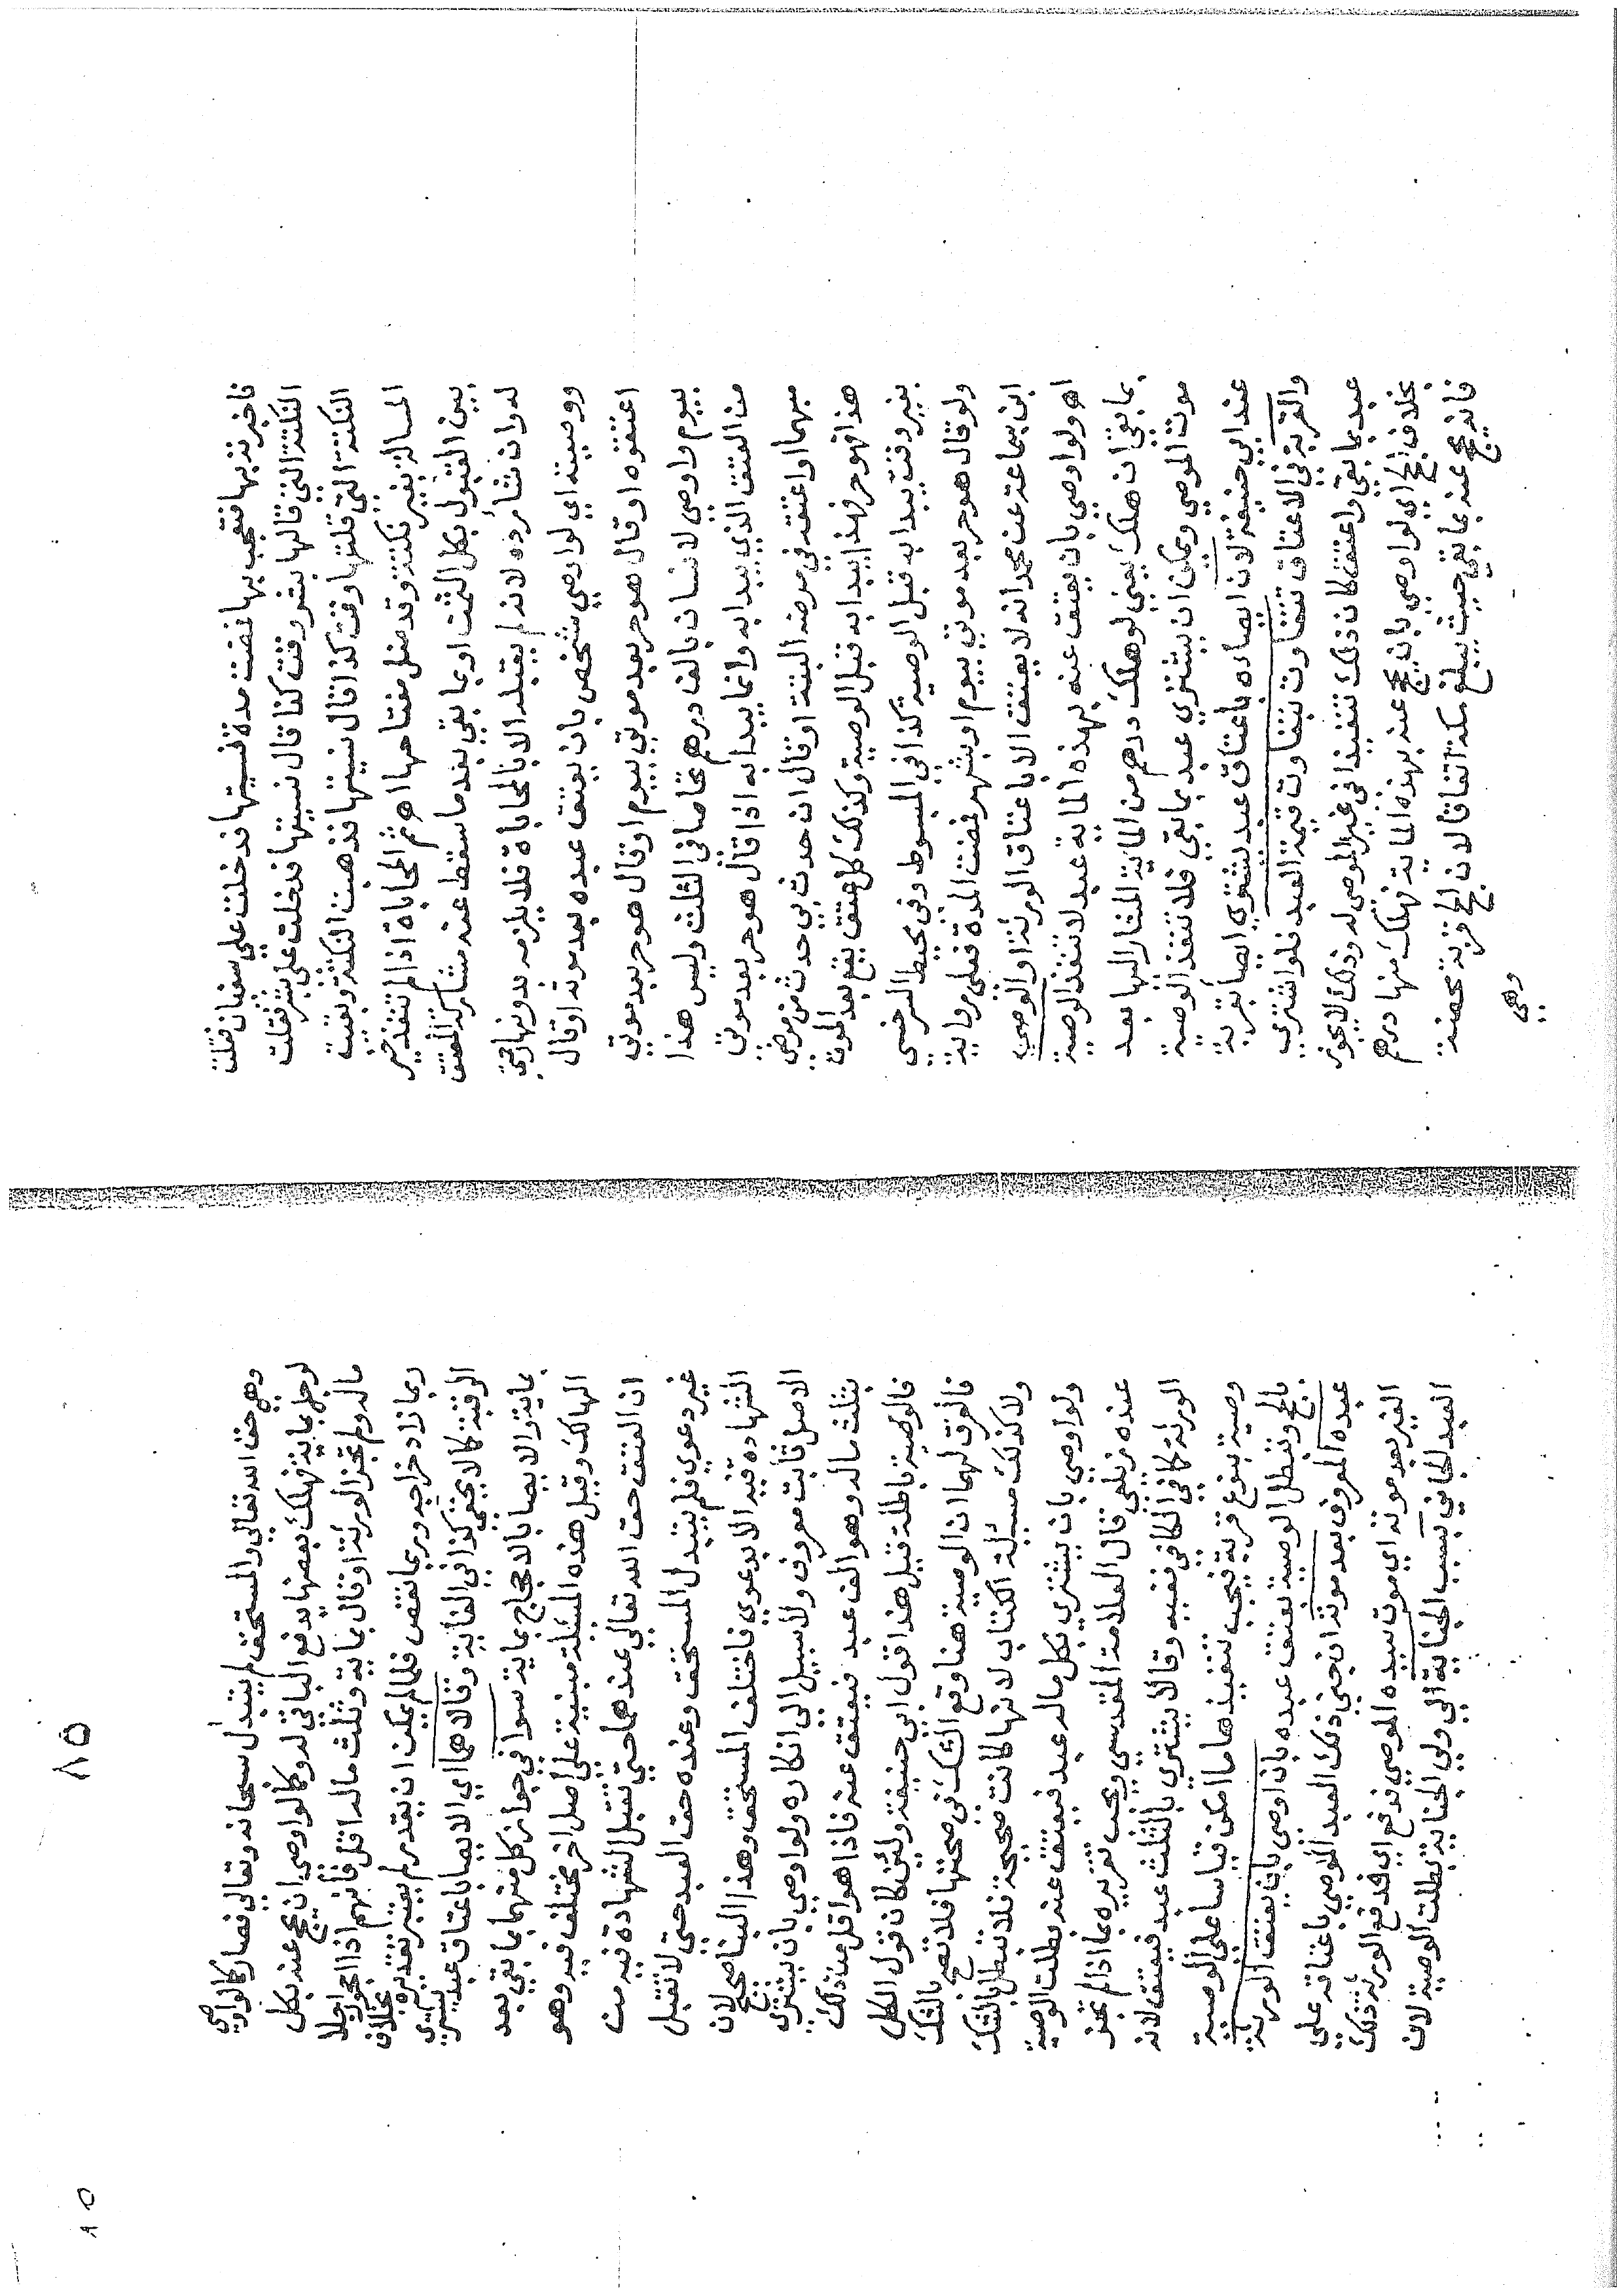 فاخبرته بها فتعجب بها فمضت مدة فنسيتها فدخلت علي سفيان فقلت
النكتة التي قالها بشر وقت كذا قال نسيتها فدخلت علي بشر فقلت
النكتة التي قلتها وقت كذا قال نسيتها فذهبت النكتة وبقيت
المسالة بغير نكتة وقد ضل مفتاحها اه ثم المحاباة اذا لم تنفذ خير
بين القبول بكل الثمن او بما بقي بعد ما سقط عنه مشاركة المعتق
له وان شأ رده لانه لم يقبله الا بالمحاباة فلا يلزمه بدونها وتجي
ووصيته اي لو اوصي شخص بان يعتق عبده بعد موته او قال
اعتقوه او قال هو حر بعد موتي بيوم او قال هو حر بعد موتي
بيوم واوصي لانسان بالف درهم تحاصا في الثلث وليس هذا
من العتق الذي يبدا به وانما يبدا به اذا قال هو حر بعد موتي
مبهما او اعتقه في مرضه البتة او قال ان حدث بي حدث من مرضي
هذا فهو حر فهذا يبدا به قبل الوصية وكذلك كل عتق يقع بعد الموت
بغير وقت يبدا به قبل الوصية كذا في المبسوط وفي محيط السرخسي
ولو قال هو حر بعد موتي بيوم او بشهر فمضت المدة فعلي رواية
ابن سماعة عن محمد انه لا يعتق الا باعتاق الورثة او الوصي
اه ولو اوصي بان يعتق عنه بهذه الماية عبد لا تنفذ الوصية
بما بقي ان هلك يعني لو هلك درهم من الماية المشار اليها بعد
موت الموصي ويمكن ان يشتري عبد بما بقي فلا تنفذ الوصية
عند ابي حنيفة لان ايصاده باعتاق عبد يشتري ايصأ بقربة
والقربة في الاعتاق تتفاوت بتفاوت قيمة العبد فلو اشتري
عبد بما بقي واعتق كان ذلك تنفيذا في غير الموصي له وذلك لا يجوز
بخلاف الحج اي لو اوصي بان يحج عنه بهذه الماية فهلك منها درهم
فانه يحج عنه بما بقي حيث يبلغ مكة اتفاقا لان الحج قربة محضة
وهي
وهي حق الله تعالي والمستحق لم يتبدل سبحانه وتعالي فصار كما لو اوصي
لرجل بماية فهلك بعضها يدفع الباقي له وكما لو اوصي ان يحج عنه بكل
ماله ولم تجز الورثة او قال بماية وثلث ماله اقل فانهم اذا لم يجوزوا
ربما زاد خراجه وربما نقص فلما لم يمكن ان يقدر لم يعتبر تقديره بخلاف
الرقبة كما لا يخفي كذا في الغاية وقالا هما اي الايصا باعتاق عبد يشتري
بماية والايصا بالاحجاج بماية سوا في جواز كل منهما بما بقي بعد
الهالك وقيل هذه المسئلة مبنية علي اصل اخر مختلف فيه وهو
ان العتق حق الله تعالي عندهما حتي تقبل الشهادة فيه من
غير دعوي فلم يتبدل المستحق وعنده حق العبد حتي لا تقبل
الشهادة فيه الا بدعوي فاختلف المستحق وهذا البنا صحيح لان
الاصل ثابت معروف ولا سبيل الي انكاره ولو اوصي بان يشتري
بثلث ماله وهو الف عبد فيعتق عنه فاذا هو اقل من ذلك
فالوصية باطلة قيل هذا قول ابي حنيفة ولئن كان قول الكل
فالفرق لهما ان الوصية هنا وقع الشك في صحتها فلا تصح بالشك
ولا كذلك مسئلة الكتاب لانها كانت صحيحة فلا تبطل بالشك
ولو اوصي بان يشتري بكل ماله عبد فيعتق عنه بطلت الوصية
عنده زيلعي قال العلامة المقدسي ويجب تقريره بما اذا لم تجز
الورثة كما في الكافي فقيه وقالا يشتري بالثلث عبد فيعتق لانه
وصية بنوع قربة فيجب تنفيذها ما امكن قياسا علي الوصية
بالحج وتبطل الوصية بعتق عبده بان اوصي بان يعتق الورثة
عبده المعروف بعد موته ان جني ذلك العبد الموصي باعتاقه علي
الغير بعد موته اي موت سيده الموصي فدفع اي فدفع الورثة ذلك
العبد الجاني بسبب الجناية الي ولي الجناية بطلت الوصية لان
٨٥